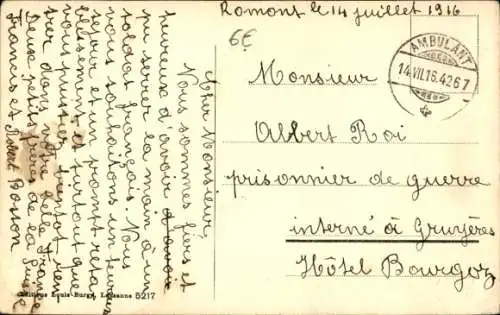 Romont le 14 juillet 1916
6€
AMBULANT
14.VII.16.4267
Monsieur
Albert Roi
prisonnier de guerre
interné à Gruyères
Hôtel Bourgoz
Cher Monsieur,
Nous sommes fiers et
heureux d'avoir
pu serrer la main à un
soldat français. Nous
vous souhaitons un heureux
séjour et un prompt réta
blissement et surtout que
vous puissiez bientôt ren
trer dans votre belle France
Deux petits frères de la Suisse
Francis et Robert Bosson
Editions Louis Burgy, Lausanne 5217